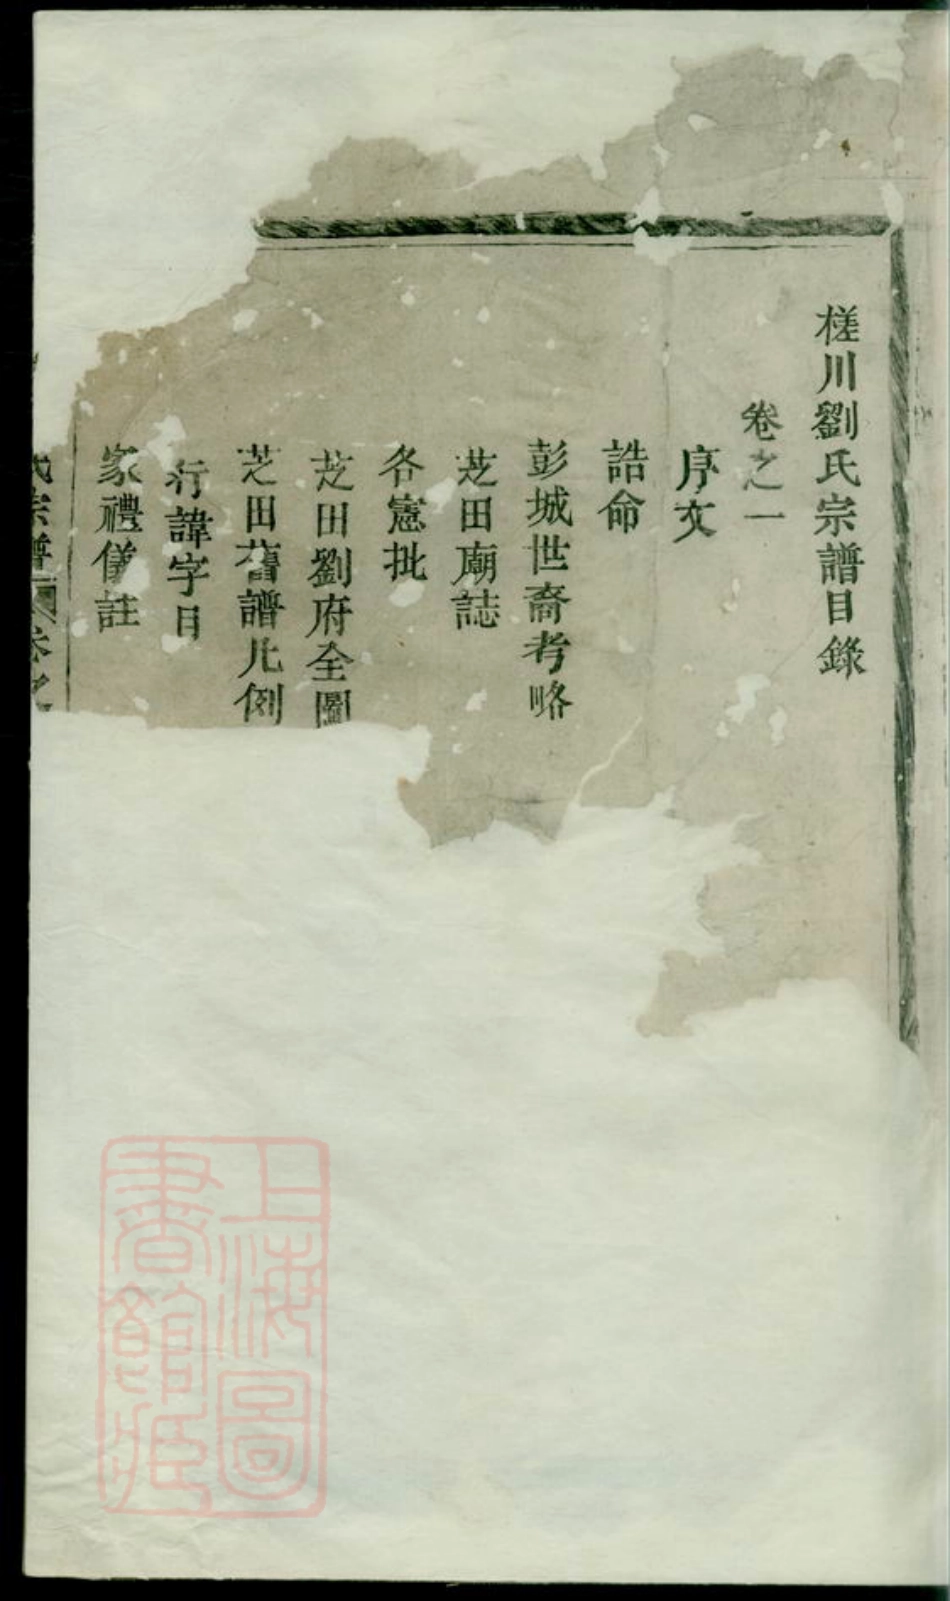 槎川劉氏宗譜目錄
卷之一
序文
誥命
彭城世裔考略
芝田廟誌
各憲批
芝田劉府全圖
芝田舊譜凡例
行諱字目
家禮儀註
氏宗譜 卷之
上海圖書館藏